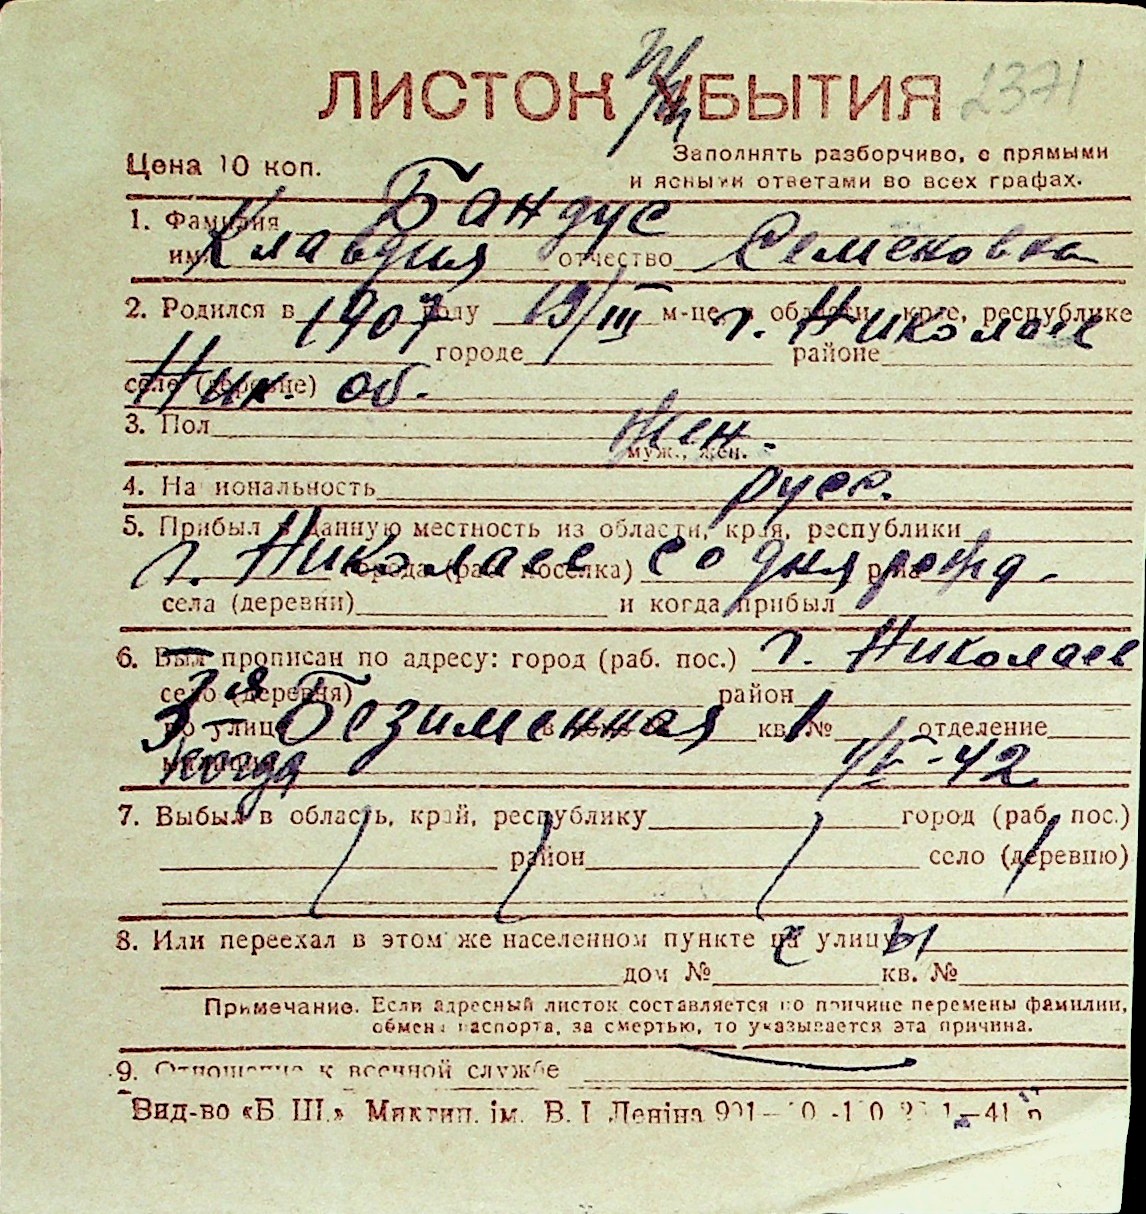 ЛИСТОК УБЫТИЯ 2371
Цена 10 коп.
Заполнять разборчиво, с прямыми
и ясными ответами во всех графах.
1. Фамилия Бандус
имя Клавдия отчество Семеновна
2. Родился в 1907 году 19/III м-це, в области, крае, республике г. Николаев
городе районе
селе (деревне) Ник. об.
3. Пол жен.
муж., жен.
4. Национальность русс.
5. Прибыл в данную местность из области, края, республики
г. Николаев города (раб. поселка) со дня рожд.
села (деревни) и когда прибыл
6. Был прописан по адресу: город (раб. пос.) г. Николаев
село (деревня) район
по улице 3-я Безименная кв. № 1 отделение
когда 1/V-42
7. Выбыл в область, край, республику город (раб. пос.)
район село (деревню)
8. Или переехал в этом же населенном пункте на улицу
дом № кв. №
Примечание. Если адресный листок составляется по причине перемены фамилии,
обмена паспорта, за смертью, то указывается эта причина.
9. Отношение к военной службе
Вид-во «Б. Ш.» Миктип. ім. В. І. Леніна